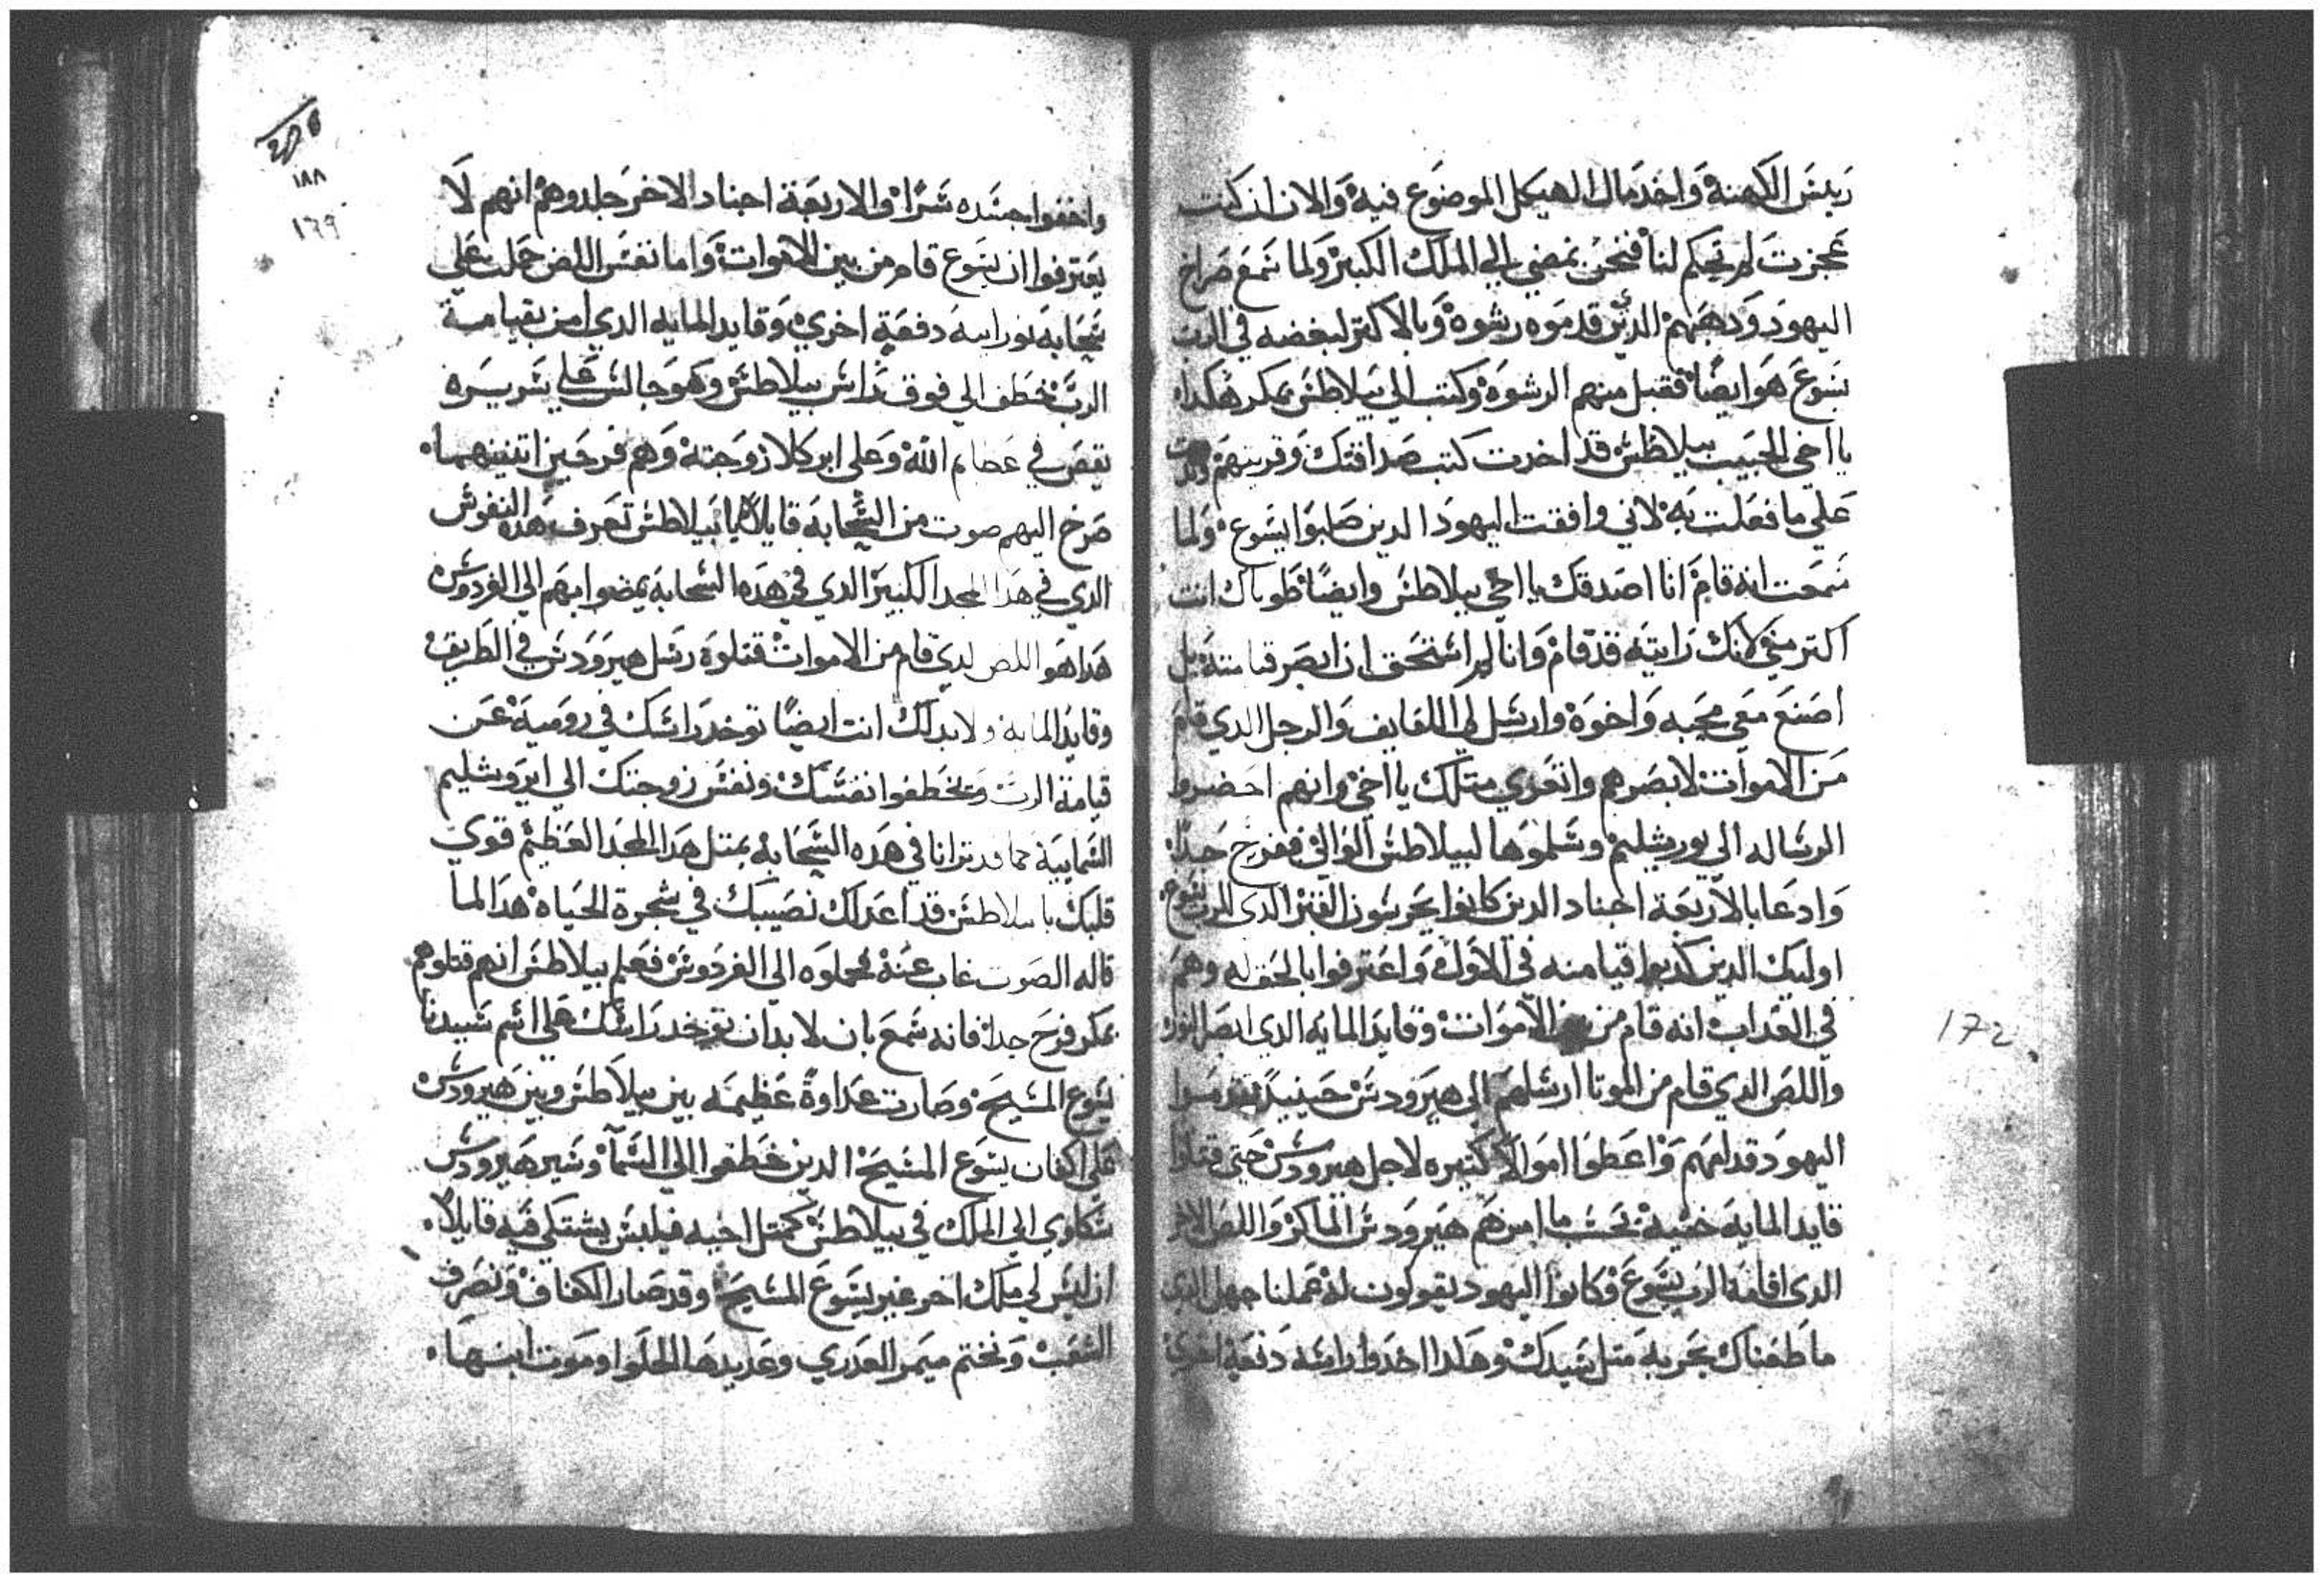 ريس الكهنة واخد مال الهيكل الموضوع فيه والان ان كنت
عجزت لم تحكم لنا فنحن نمضي الي الملك الكبير ولما سمع صراخ
اليهود ودهبهم الدين قدموه رشوة وبالاكتر لبغضه في الرب
يسوع هو ايضا فقبل منهم الرشوة وكتب الي بيلاطس بمكر هكدا
يا اخي الحبيب بيلاطس قد اخدت كتب صداقتك وقريتهم
علي ما فعلت به لاني وافقت اليهود الدين صلبوا يسوع ولما
سمعت انه قام انا اصدقك يا اخي بيلاطس وايضا طوباك انت
اكتر مني لانك رايته قد قام وانا لم استحق ان ابصر قيامته بل
اصنع معي محبه واخوة وارسل لي اللفايف والرجل الدي قام
من الاموات لابصرهم واتعزي متلك يا اخي وانهم احضروا
الرساله الي يورشليم وسلموها لبيلاطس الوالي ففرح جدا
وادعا بالاربعة اجناد الدين كانوا يحرسون القبر الدي للرب يسوع
اوليك الدين كدبوا قيامته في الاول واعترفوا بالحق له وهم
في العداب انه قام من الاموات وقايد المايه الدي ابصر النور
واللص الدي قام من الموتا ارسلهم الي هيرودس حينيد تقدموا
اليهود قدامهم واعطوا اموالا كتيره لاجل هيرودس حتي قتلوا
قايد المايه خفية بحسب ما امرهم هيرودس الماكر واللص الاخر
الدي اقامه الرب يسوع وكانوا اليهود يقولون له عملنا جهل الدي
ما طعناك بحربه متل سيدك وهكدا اخدوا راسه دفعة اخري
واخفوا جسده سرا والاربعة اجناد الاخر جلدوهم انهم لا
يعترفوا ان يسوع قام من بين الاموات واما نفس اللص حملت علي
سحابة نورانيه دفعة اخري وقايد المايه الدي امن بقيامة
الرب خطف الي فوق راس بيلاطس وهو جالس علي سريره
يقص في عظايم الله وعلي ابركلا زوجته وهم فرحين اتنينهما
صرخ اليهم صوت من السحابه قايلا يا بيلاطس تعرف هده النفوس
الدي في هدا المجد الكبير الدي في هده السحابه يمضوا بهم الي الفردوس
هدا هو اللص لدي قام من الاموات قتلوه رسل هيرودس في الطريق
وقايد المايه ولا بد لك انت ايضا توخد راسك في رومية عن
قيامة الرب ويخطفوا نفسك ونفس زوجتك الي ايروشليم
السمايية كما قد ترانا في هده السحابه بمتل هدا المجد العظيم قوي
قلبك يا بيلاطس قد اعد لك نصيبك في شجرة الحياه هدا لما
قاله الصوت غاب عنه فحملوه الي الفردوس فعلم بيلاطس انهم قتلوهم
بمكر فرح جدا فانه سمع بان لا بد ان توخد راسك علي اسم سيدنا
يسوع المسيح وصارت عداوة عظيمه بين بيلاطس وبين هيرودس
علي اكفان يسوع المسيح الدين خطفوا الي السما وسير هيرودس
شكاوي الي الملك في بيلاطس كمتل اخيه فيلبس يشتكي فيه قايلا
ان ليس لي ملك اخر غير يسوع المسيح وقد صار الكفاف ونصرف
الشعب ونختم ميمر العدري وعديدها الحلوا وموت ابنها
١٨٨
١٦٩
172